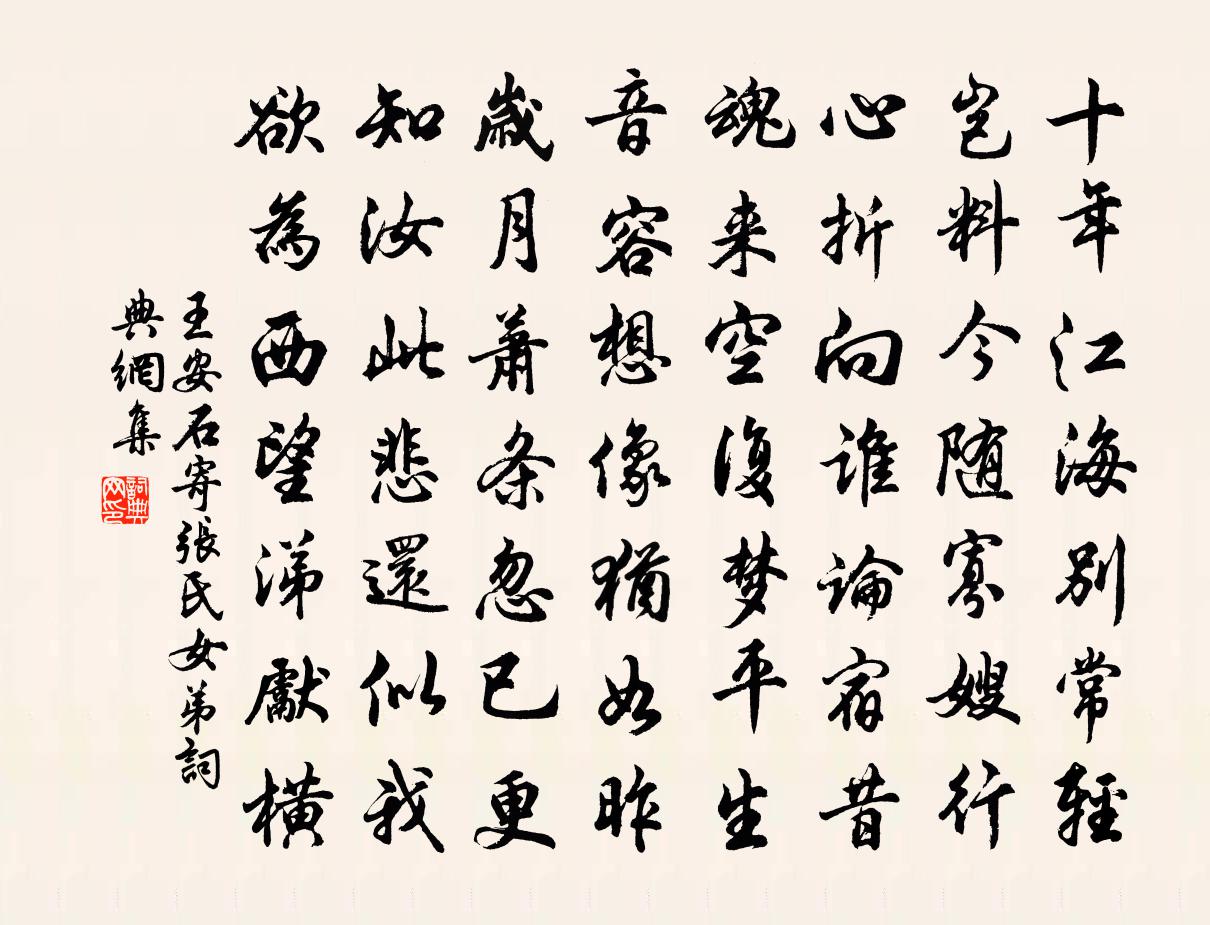 十年江海别常輕
豈料今随寡嫂行
心折向谁論宿昔
魂来空復梦平生
音容想像猶如昨
歲月蕭条忽已更
知汝此悲還似我
欲為西望涕獻橫
王安石寄張氏女弟詞
典網集
詞典
网印